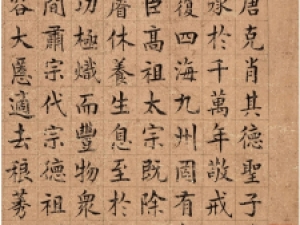 唐克肖其德聖子
承於千萬年敬戒
覆四海九州罔有
臣高祖太宗既除
睿休養生息至於
功極熾而豐物衆
間肅宗代宗德祖
容大慝適去稂莠